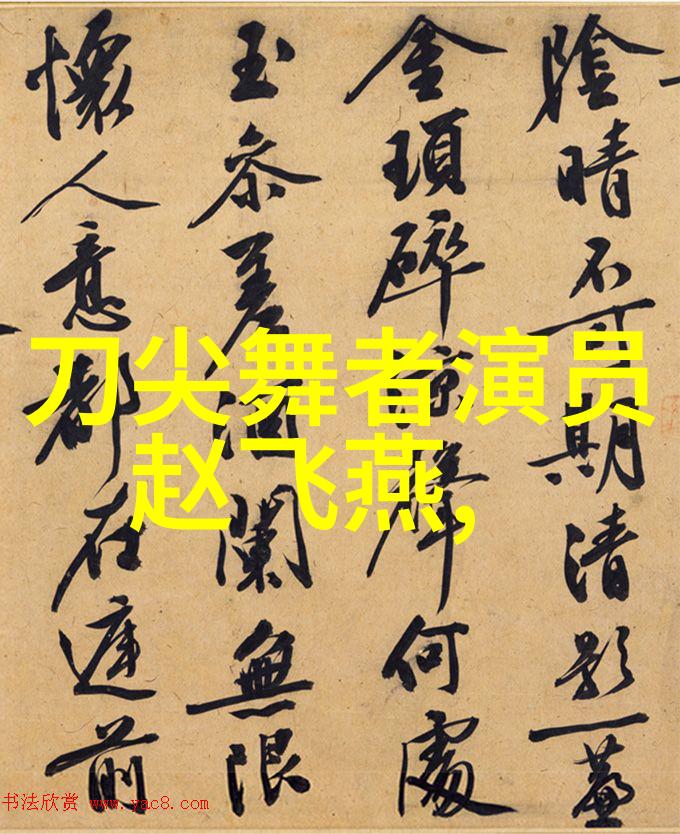 陰晴不可期清影一
金瑣碎涼聲何處
玉參差酒闌無限
懷人意都在庭前
刀尖舞者演员
赵飞燕,
书法欣赏 www.yac8.com